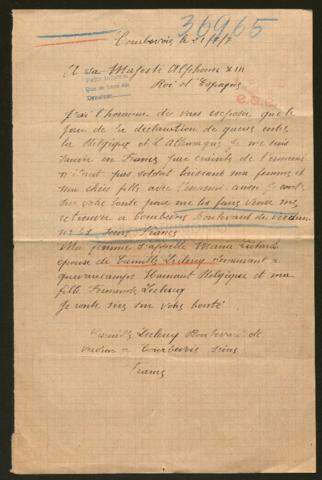 36965
Courbevoie le 21/7/7
A sa Majesté Alphonse XIII
Roi d'Espagne
J'ai l'honneur de vous exposer que le
jour de la déclaration de guerre entre
la Belgique et l'Allemagne je me suis
sauvé en France par crainte de l'ennemi
n'étant pas soldat laissant ma femme et
ma chère fille avec l'ennemi aussi je
sur votre bonté pour me les faire venir me
retrouver a Courbevoie boulevard de verdun
Seine France
Ma femme s'appelle Maria
épouse de Camille Leclercq demeurant a
quevaucamps Hainaut Belgique et ma
fille Fernande Leclercq
Je compte sur votre bonté
Camille Leclercq Boulevard de
verdun a Courbevoie Seine
France